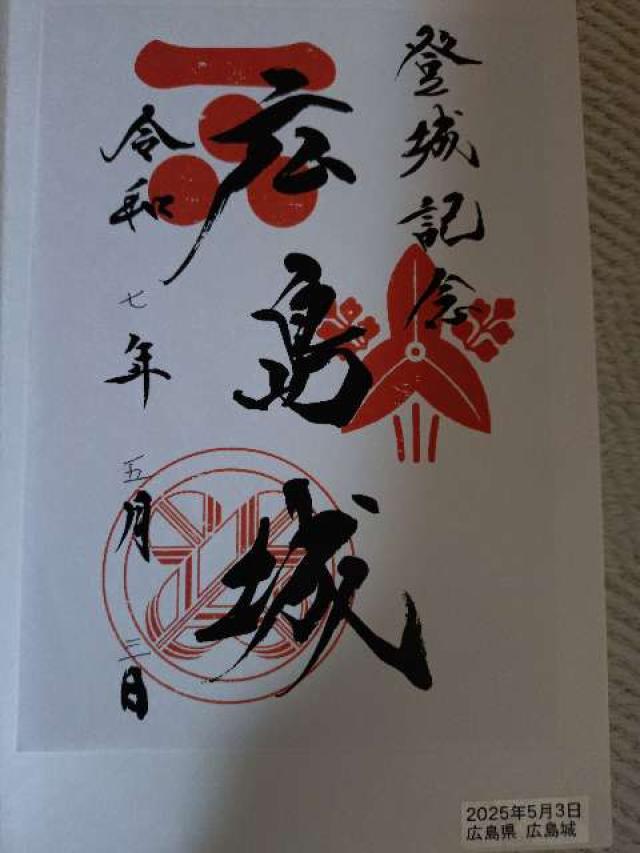 登城記念
広島城
令和七年五月三日
2025年5月3日
広島県 広島城